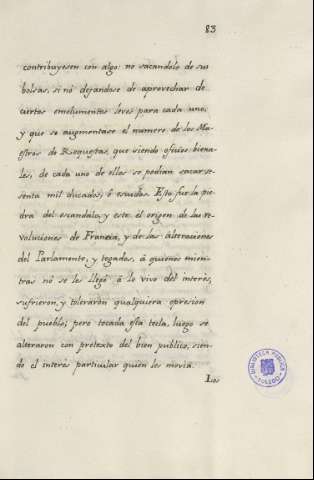 83
contribuyesen con algo: no sacandolo de sus
bolsas, si nó dejandose de aprovechar de
ciertos emolumentos leves para cada uno;
y que se augmentase el numero de los Ma-
estros de Requestas, que siendo oficios biena-
les, de cada uno de ellos se podian sacar se-
senta mil ducados, ó escudos. Esto fue la pie-
dra del escandalo, y este el origen de las re-
voluciones de Francia, y de las alteraciones
del Parlamento, y togados, á quienes mien-
tras nó se les llegó á lo vivo del interés,
sufrieron, y toleraron qualquiera opresion
del pueblo; pero tocada esta tecla, luego se
alteraron con pretexto del bien publico, sien-
do el interés particular quien les movia.
Los
BIBLIOTECA PUBLICA
TOLEDO